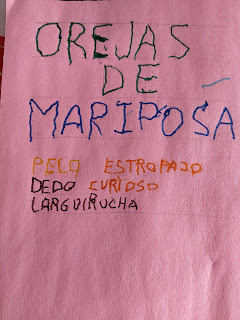 OREJAS
DE
MARIPOSA
PELO ESTROPAJO
DEDO CURIOSO
LARGUIRUCHA